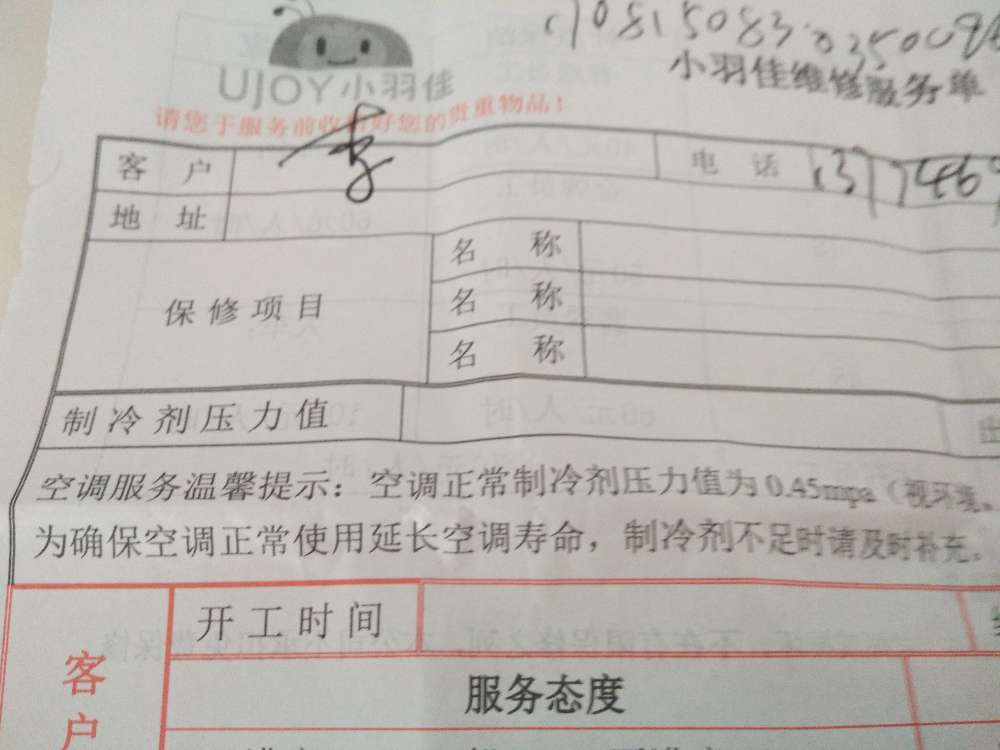 UJOY小羽佳
小羽佳维修服务单
请您于服务前收拾好您的贵重物品!
客户 李 电话
地址
保修项目
名称
名称
名称
制冷剂压力值
空调服务温馨提示:空调正常制冷剂压力值为0.45mpa(视环境
为确保空调正常使用延长空调寿命,制冷剂不足时请及时补充。
客户
开工时间
服务态度